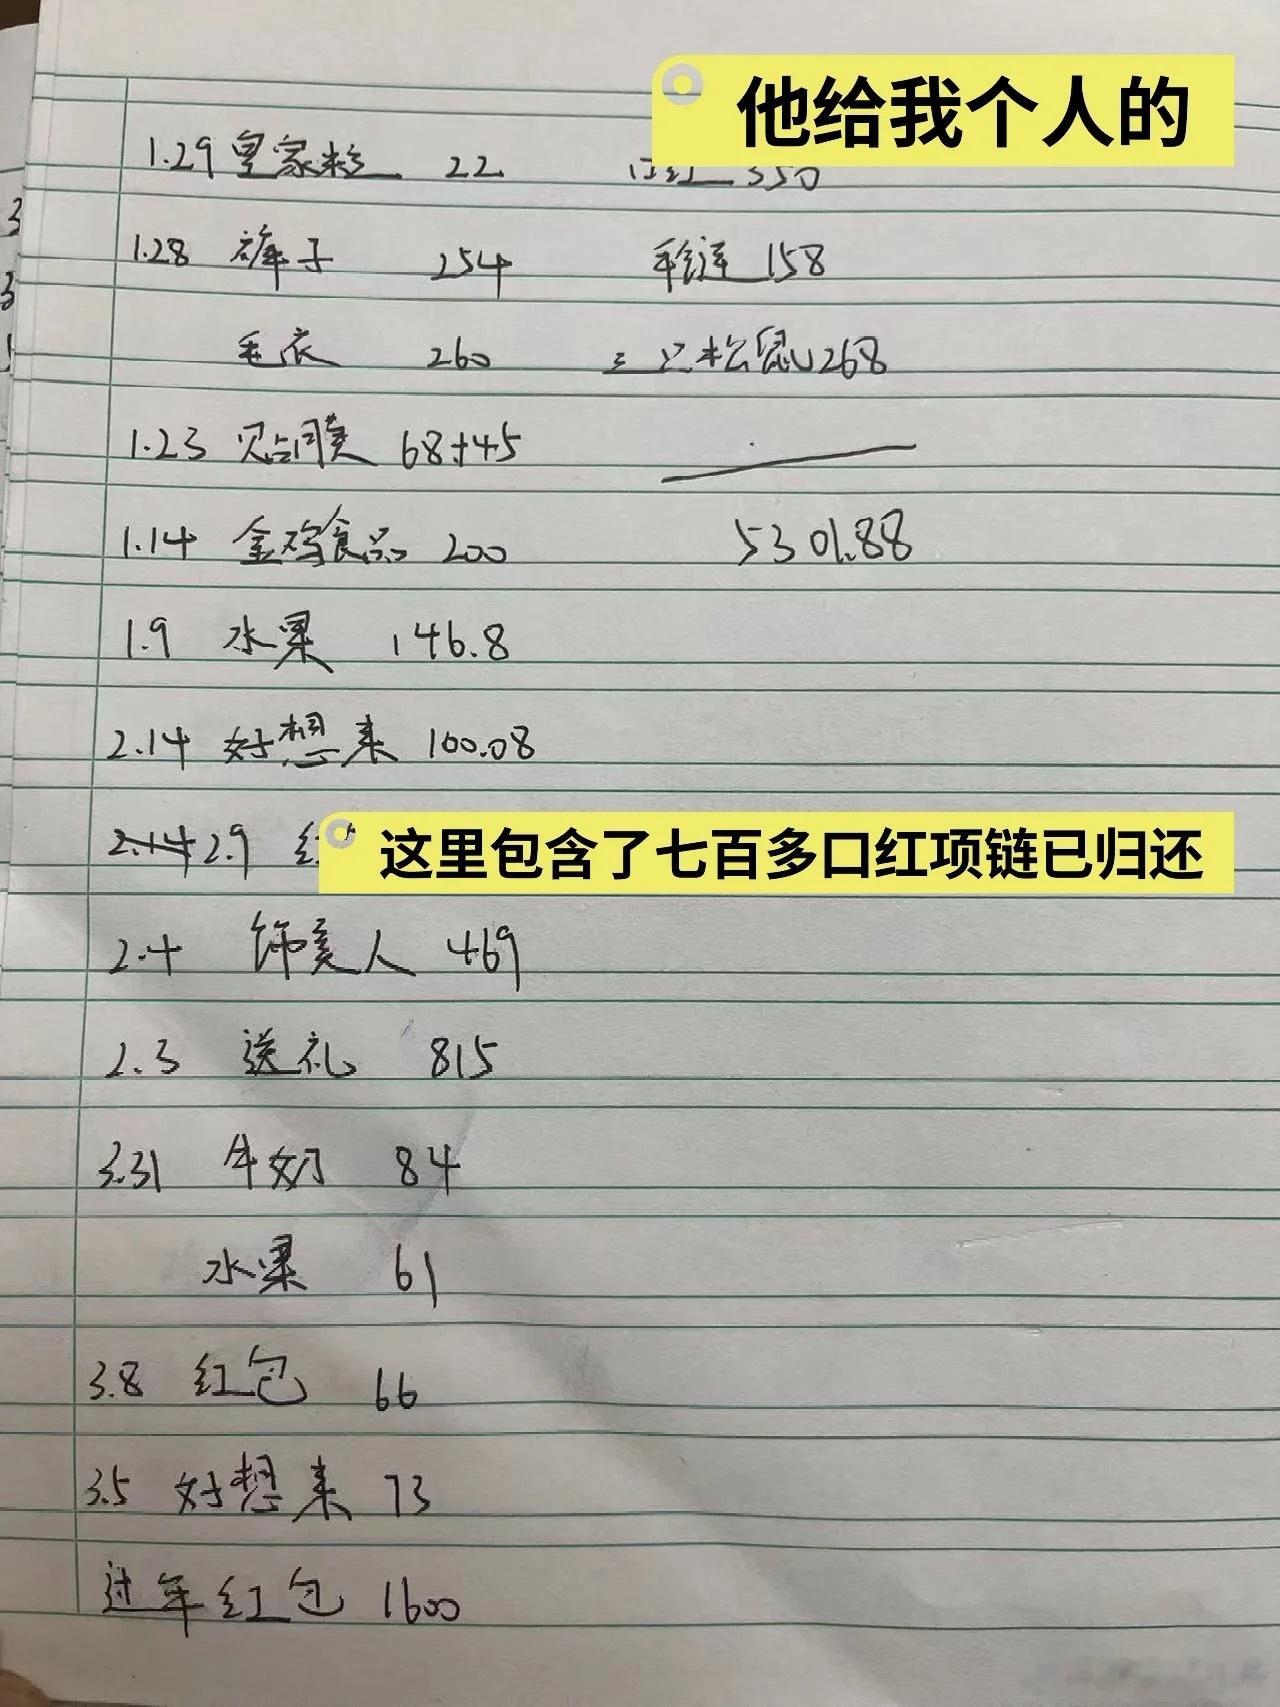 他给我个人的
1.29 皇家粮 22 口红 350
1.28 裤子 254 手链 158
毛衣 260 三只松鼠 268
1.23 贴膜 68+45
1.14 金鸡食品 200 5301.88
1.9 水果 146.8
2.14 好想来 100.08
2.14 2.9
这里包含了七百多口红项链已归还
2.4 饰美人 469
2.3 送礼 815
3.31 牛奶 84
水果 61
3.8 红包 66
3.5 好想来 73
过年红包 1600